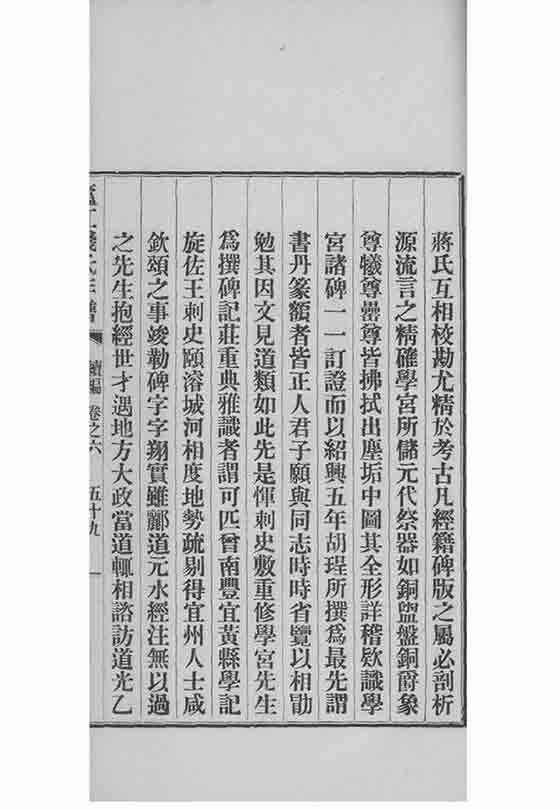 蔣氏互相校勘尤精於考古凡經籍碑版之屬必剖析
源流言之精確學宮所儲元代祭器如銅盥盤銅爵象
尊犧尊罍尊皆拂拭出塵垢中圖其全形詳稽欵識學
宮諸碑一一訂證而以紹興五年胡珵所撰爲最先謂
書丹篆額者皆正人君子願與同志時時省覽以相勖
勉其因文見道類如此先是惲刺史敷重修學宮先生
爲撰碑記莊重典雅識者謂可匹曾南豐宜黃縣學記
旋佐王刺史頤溶城河相度地勢疏剔得宜州人士咸
欽頌之事竣勒碑字字翔實雖酈道元水經注無以過
之先生抱經世才遇地方大政當道輒相諮訪道光乙
續編 卷之六 五十九